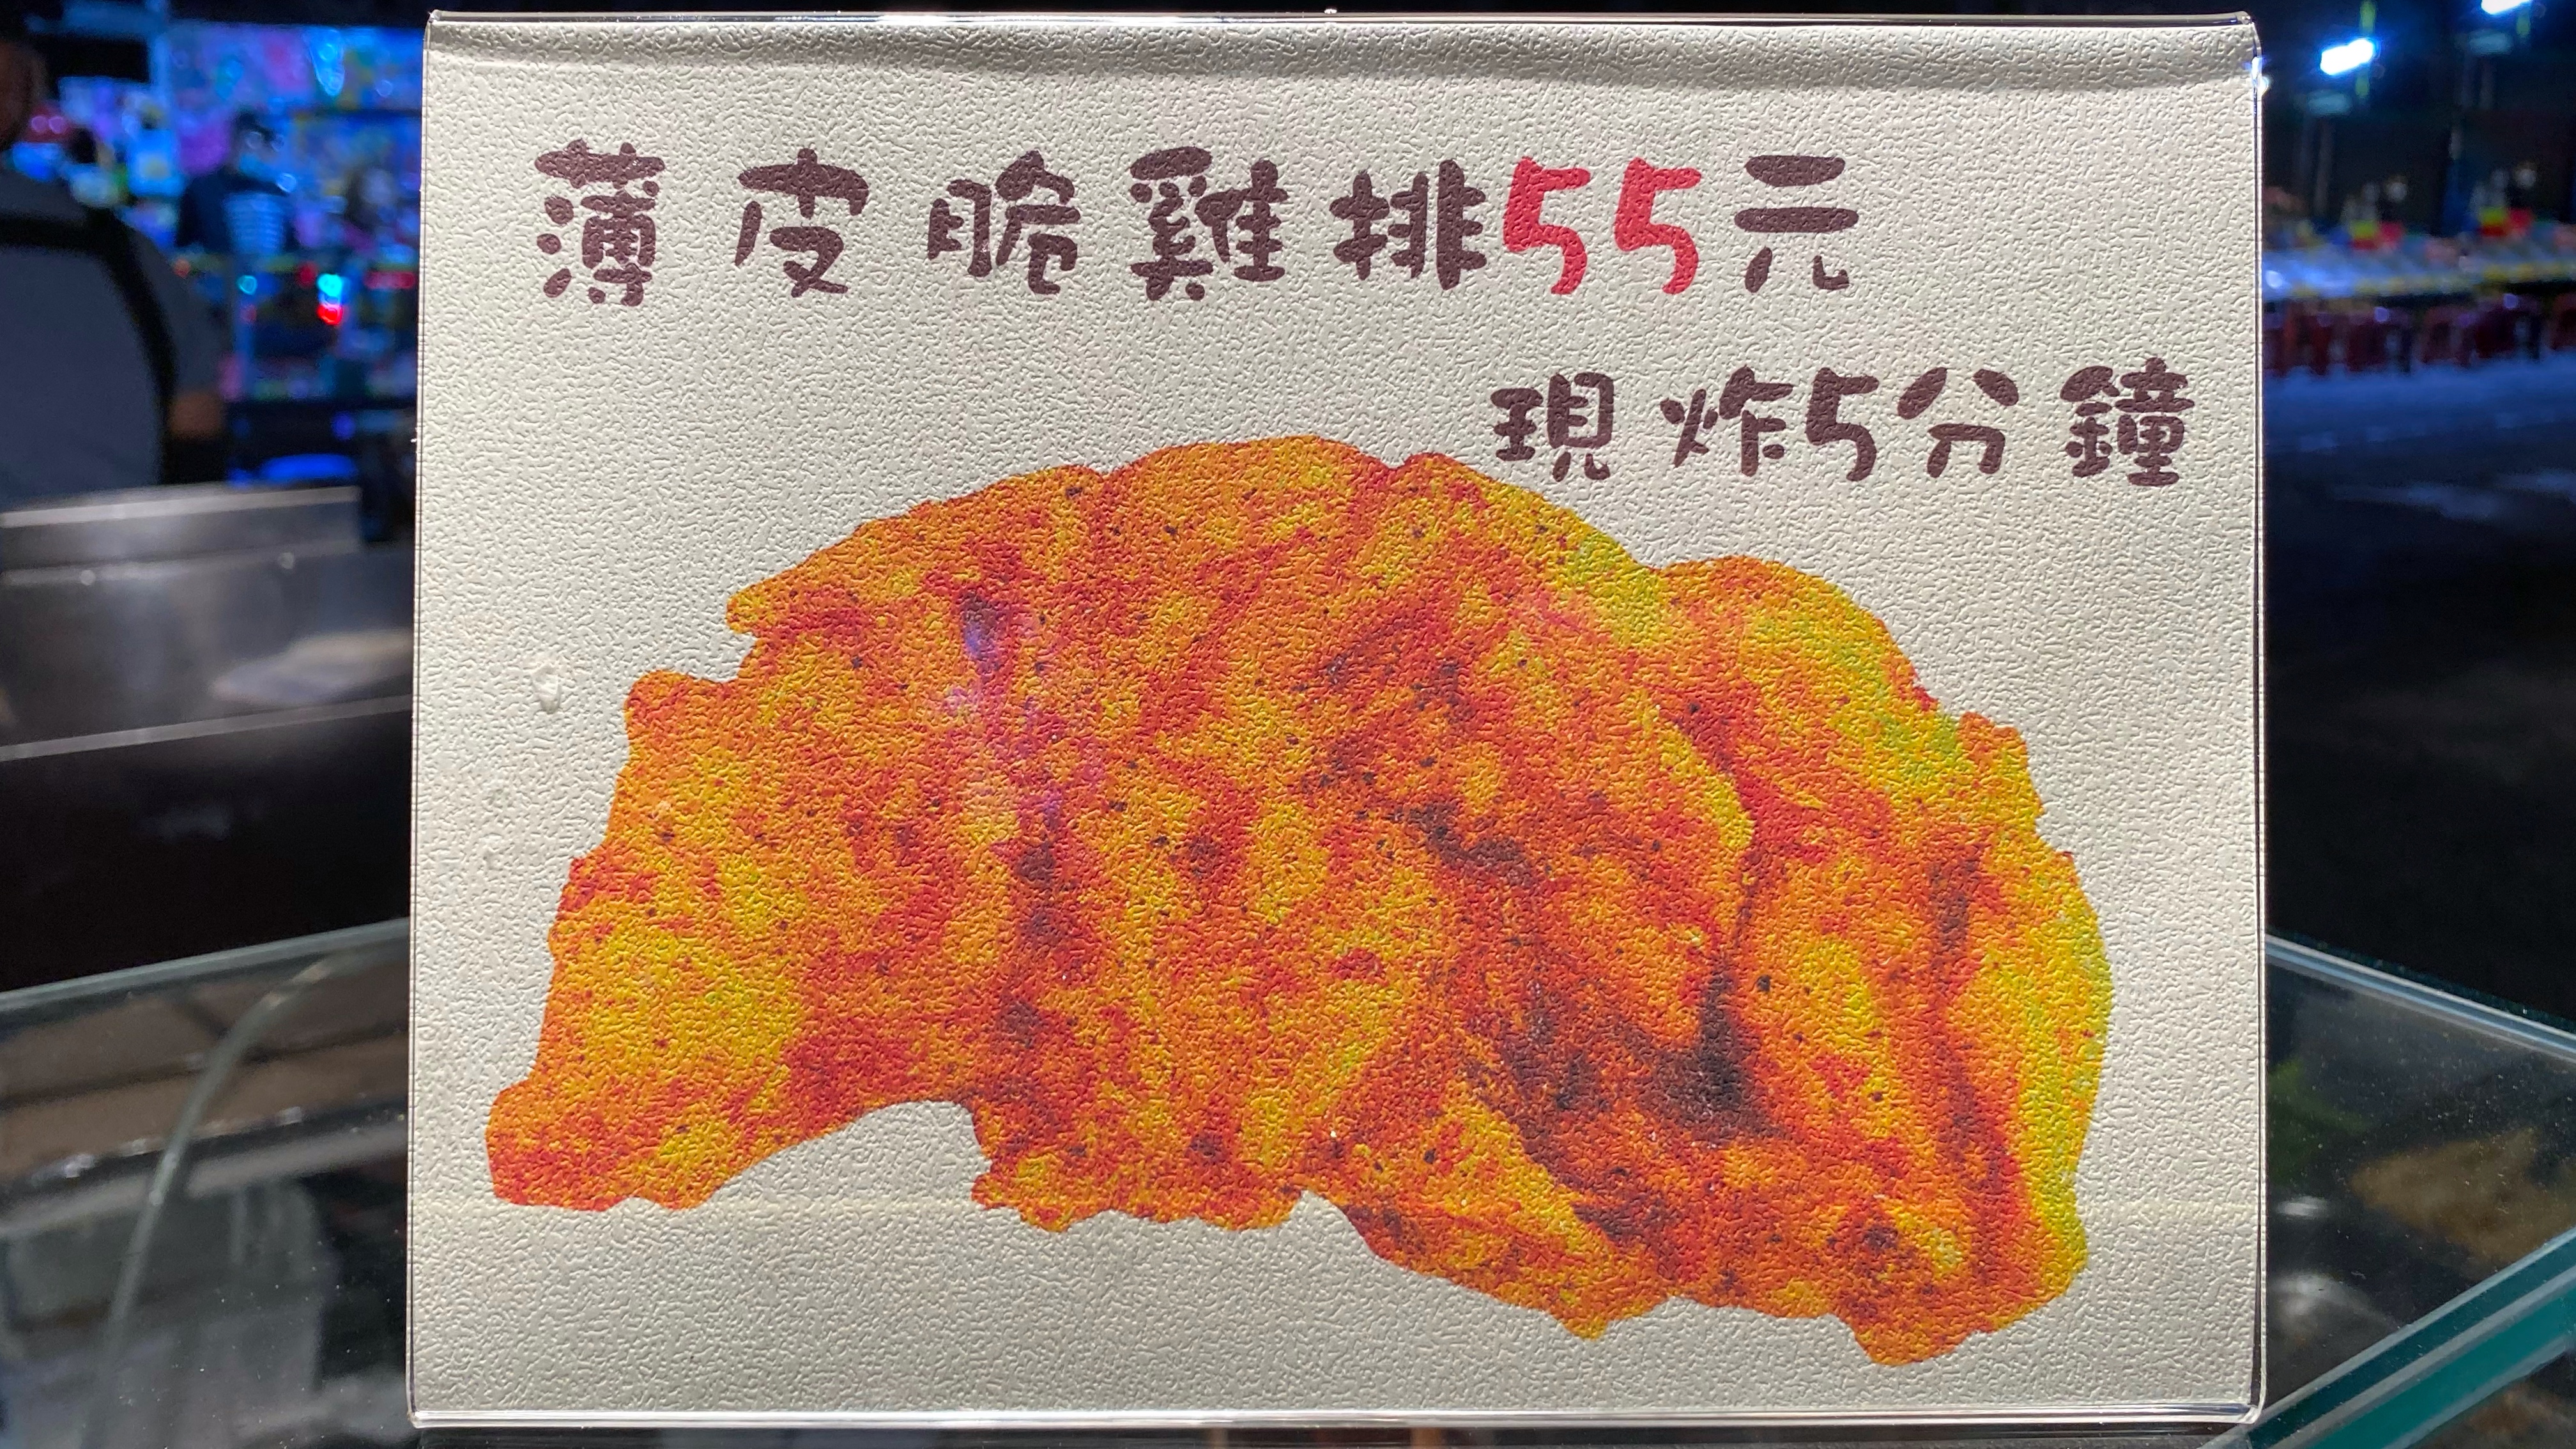 薄皮脆雞排55元
現炸5分鐘